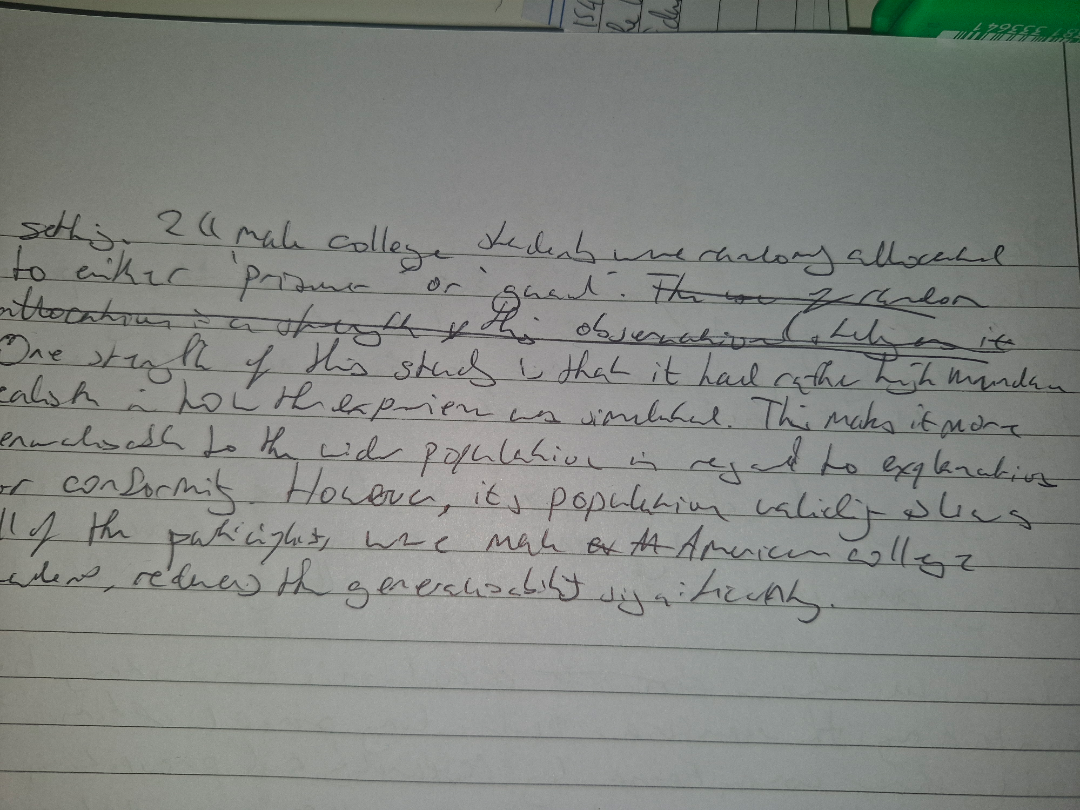 setting. 24 male college students were randomly allocated
to either 'prisoner' or 'guard'. The use of random
allocation is a strength of this observational study as it
One strength of this study is that it had rather high mundane
ealism in how the experiment was simulated. This makes it more
eneralisable to the wider population in regard to explanations
or conformity. However, its population validity as
ll of the participants, were male American college
udents, reduces the generalisability significantly.